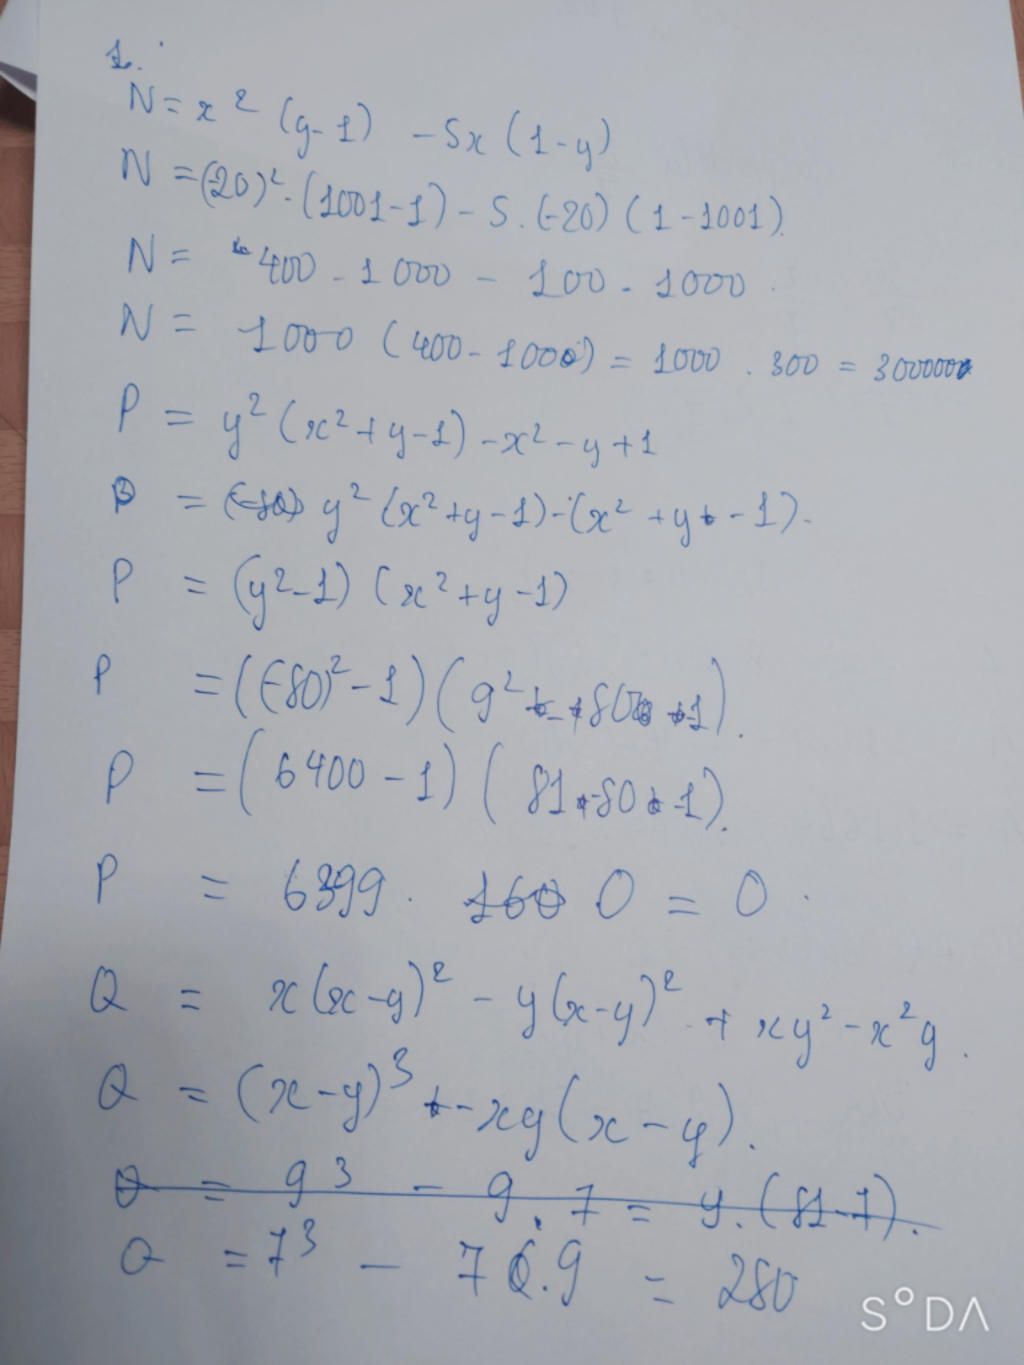 1.
N = x² (y-1) - 5x (1-y)
N = (-20)² . (1001-1) - 5. (-20) (1-1001)
N = 400 . 1000 - 100 . 1000
N = 1000 (400-1000) = 1000 . 300 = 3000000
P = y² (x²+y-1) -x² -y +1
P = y² (x²+y-1) - (x² +y -1).
P = (y²-1) (x²+y-1)
P = ((-80)² -1) (9² -80 -1).
P = (6400 -1) (81 -80 -1).
P = 6399 . 0 = 0 .
Q = x(x-y)² - y(x-y)² + xy² - x²y .
Q = (x-y)³ - xy(x-y).
Q = 9³ - 9.7 = 9.(81-7).
Q = 7³ - 7.9 = 280
S°DA